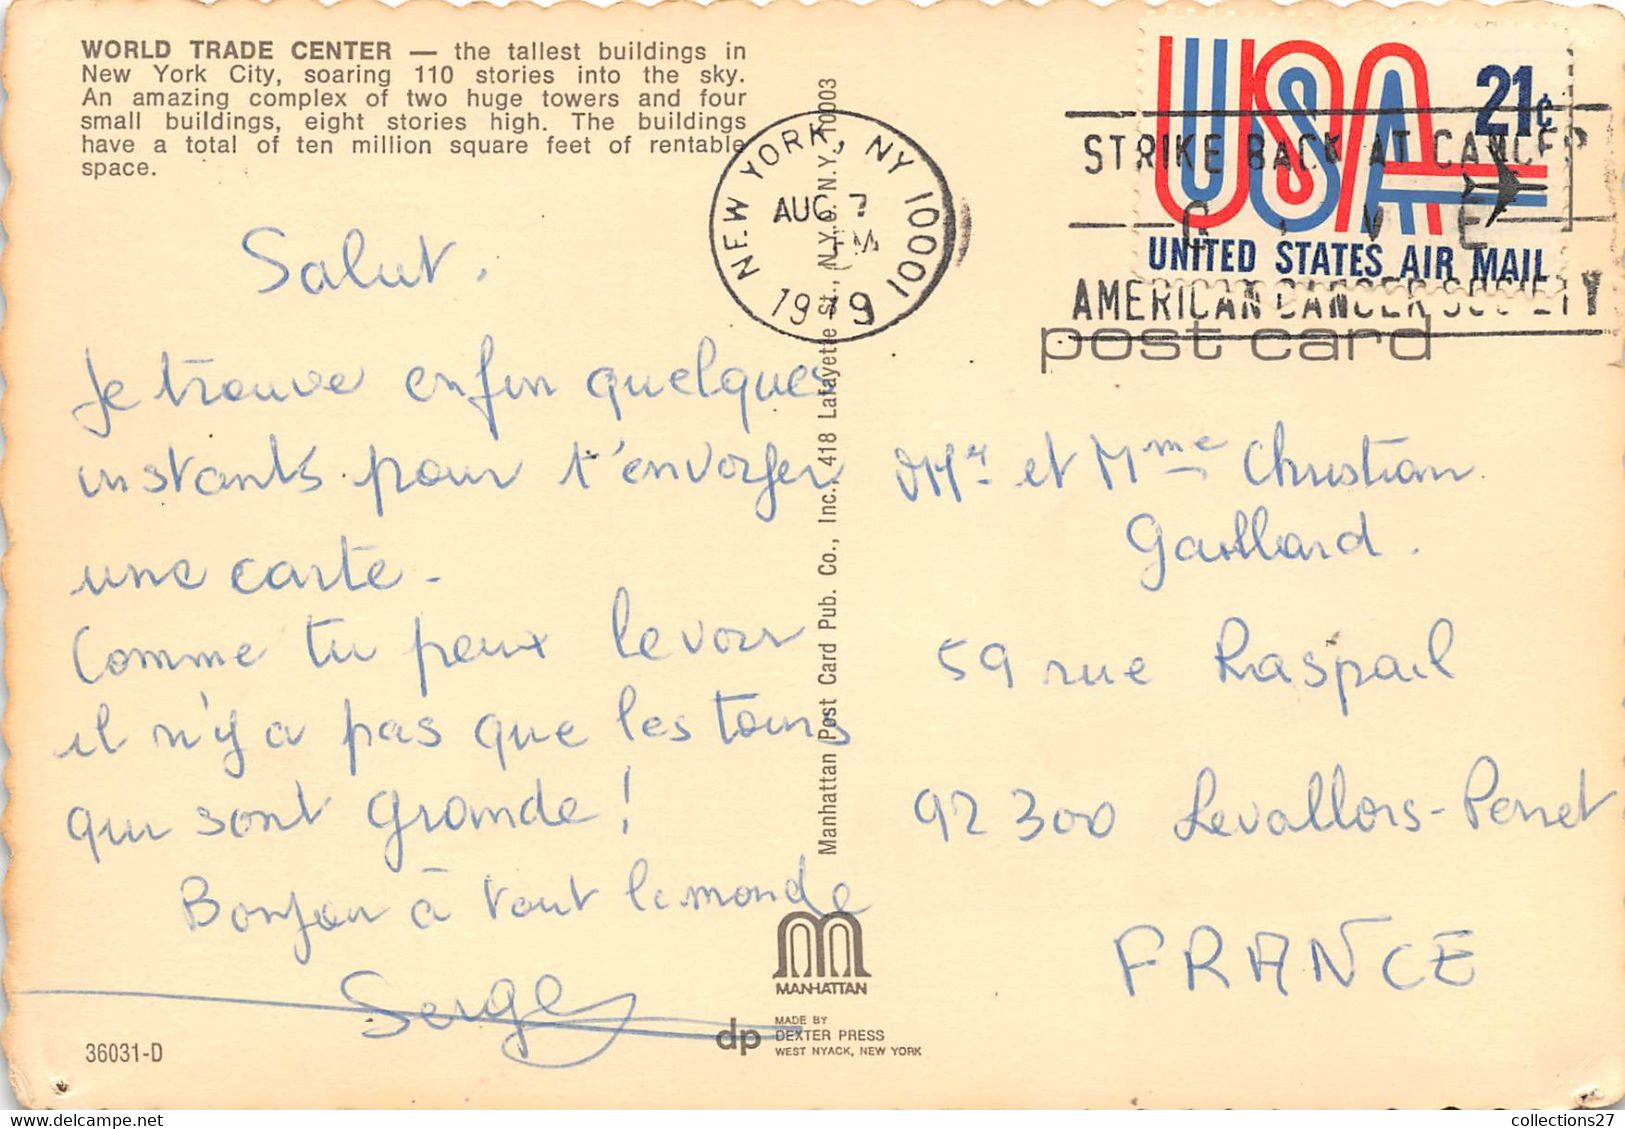 WORLD TRADE CENTER — the tallest buildings in
New York City, soaring 110 stories into the sky.
An amazing complex of two huge towers and four
small buildings, eight stories high. The buildings
have a total of ten million square feet of rentable
space.
NEW YORK, NY 10001
AUG 7
PM
1979
21¢
USA
UNITED STATES AIR MAIL
STRIKE BACK AT CANCER
AMERICAN CANCER SOCIETY
post card
Salut.
Je trouve enfin quelques
instants pour t'envoyer
une carte.
Comme tu peux le voir
il n'y a pas que les tours
qui sont grande !
Bonjour à tout le monde
Serge
Mr et Mme Christian
Gaillard.
59 rue Raspail
92300 Levallois-Perret
FRANCE
Manhattan Post Card Pub. Co., Inc., 418 Lafayette St., N.Y.C. N.Y. 10003
MANHATTAN
dp
MADE BY
DEXTER PRESS
WEST NYACK, NEW YORK
36031-D
collections27